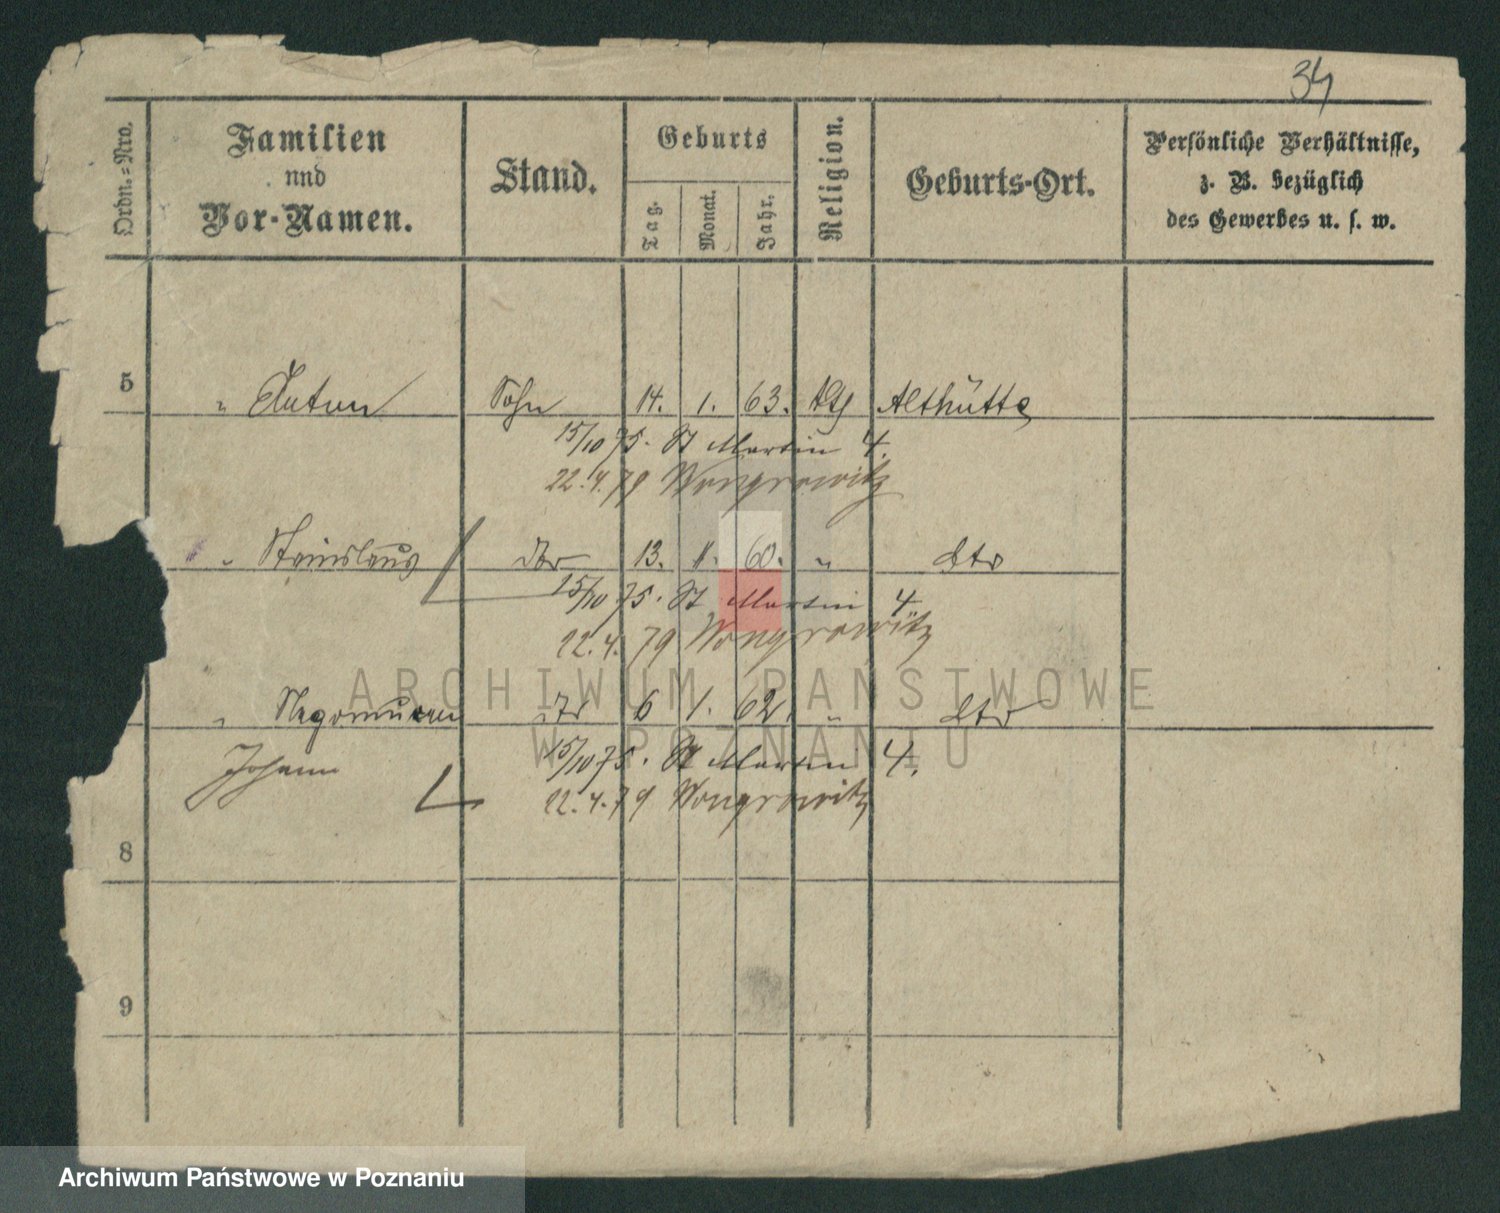 34
Ordn.-Nro.
Familien
und
Vor-Namen.
Stand.
Geburts
Tag.
Monat.
Jahr.
Religion.
Geburts-Ort.
Persönliche Verhältnisse,
z. B. bezüglich
des Gewerbes u. s. w.
5 " Anton Sohn 14. 1. 63. kth Althütte
15/10 75. St Martin 4.
22.4.79 Wongrowitz
" Stanislaus dto 13. 60. " dto
15/10 75. St Martin 4
22.4.79 Wongrowitz
" dto 6 1. 62. " dto
Johann 15/10 75. St Martin 4.
22.4.79 Wongrowitz
8
9
ARCHIWUM PAŃSTWOWE
W POZNANIU
Archiwum Państwowe w Poznaniu